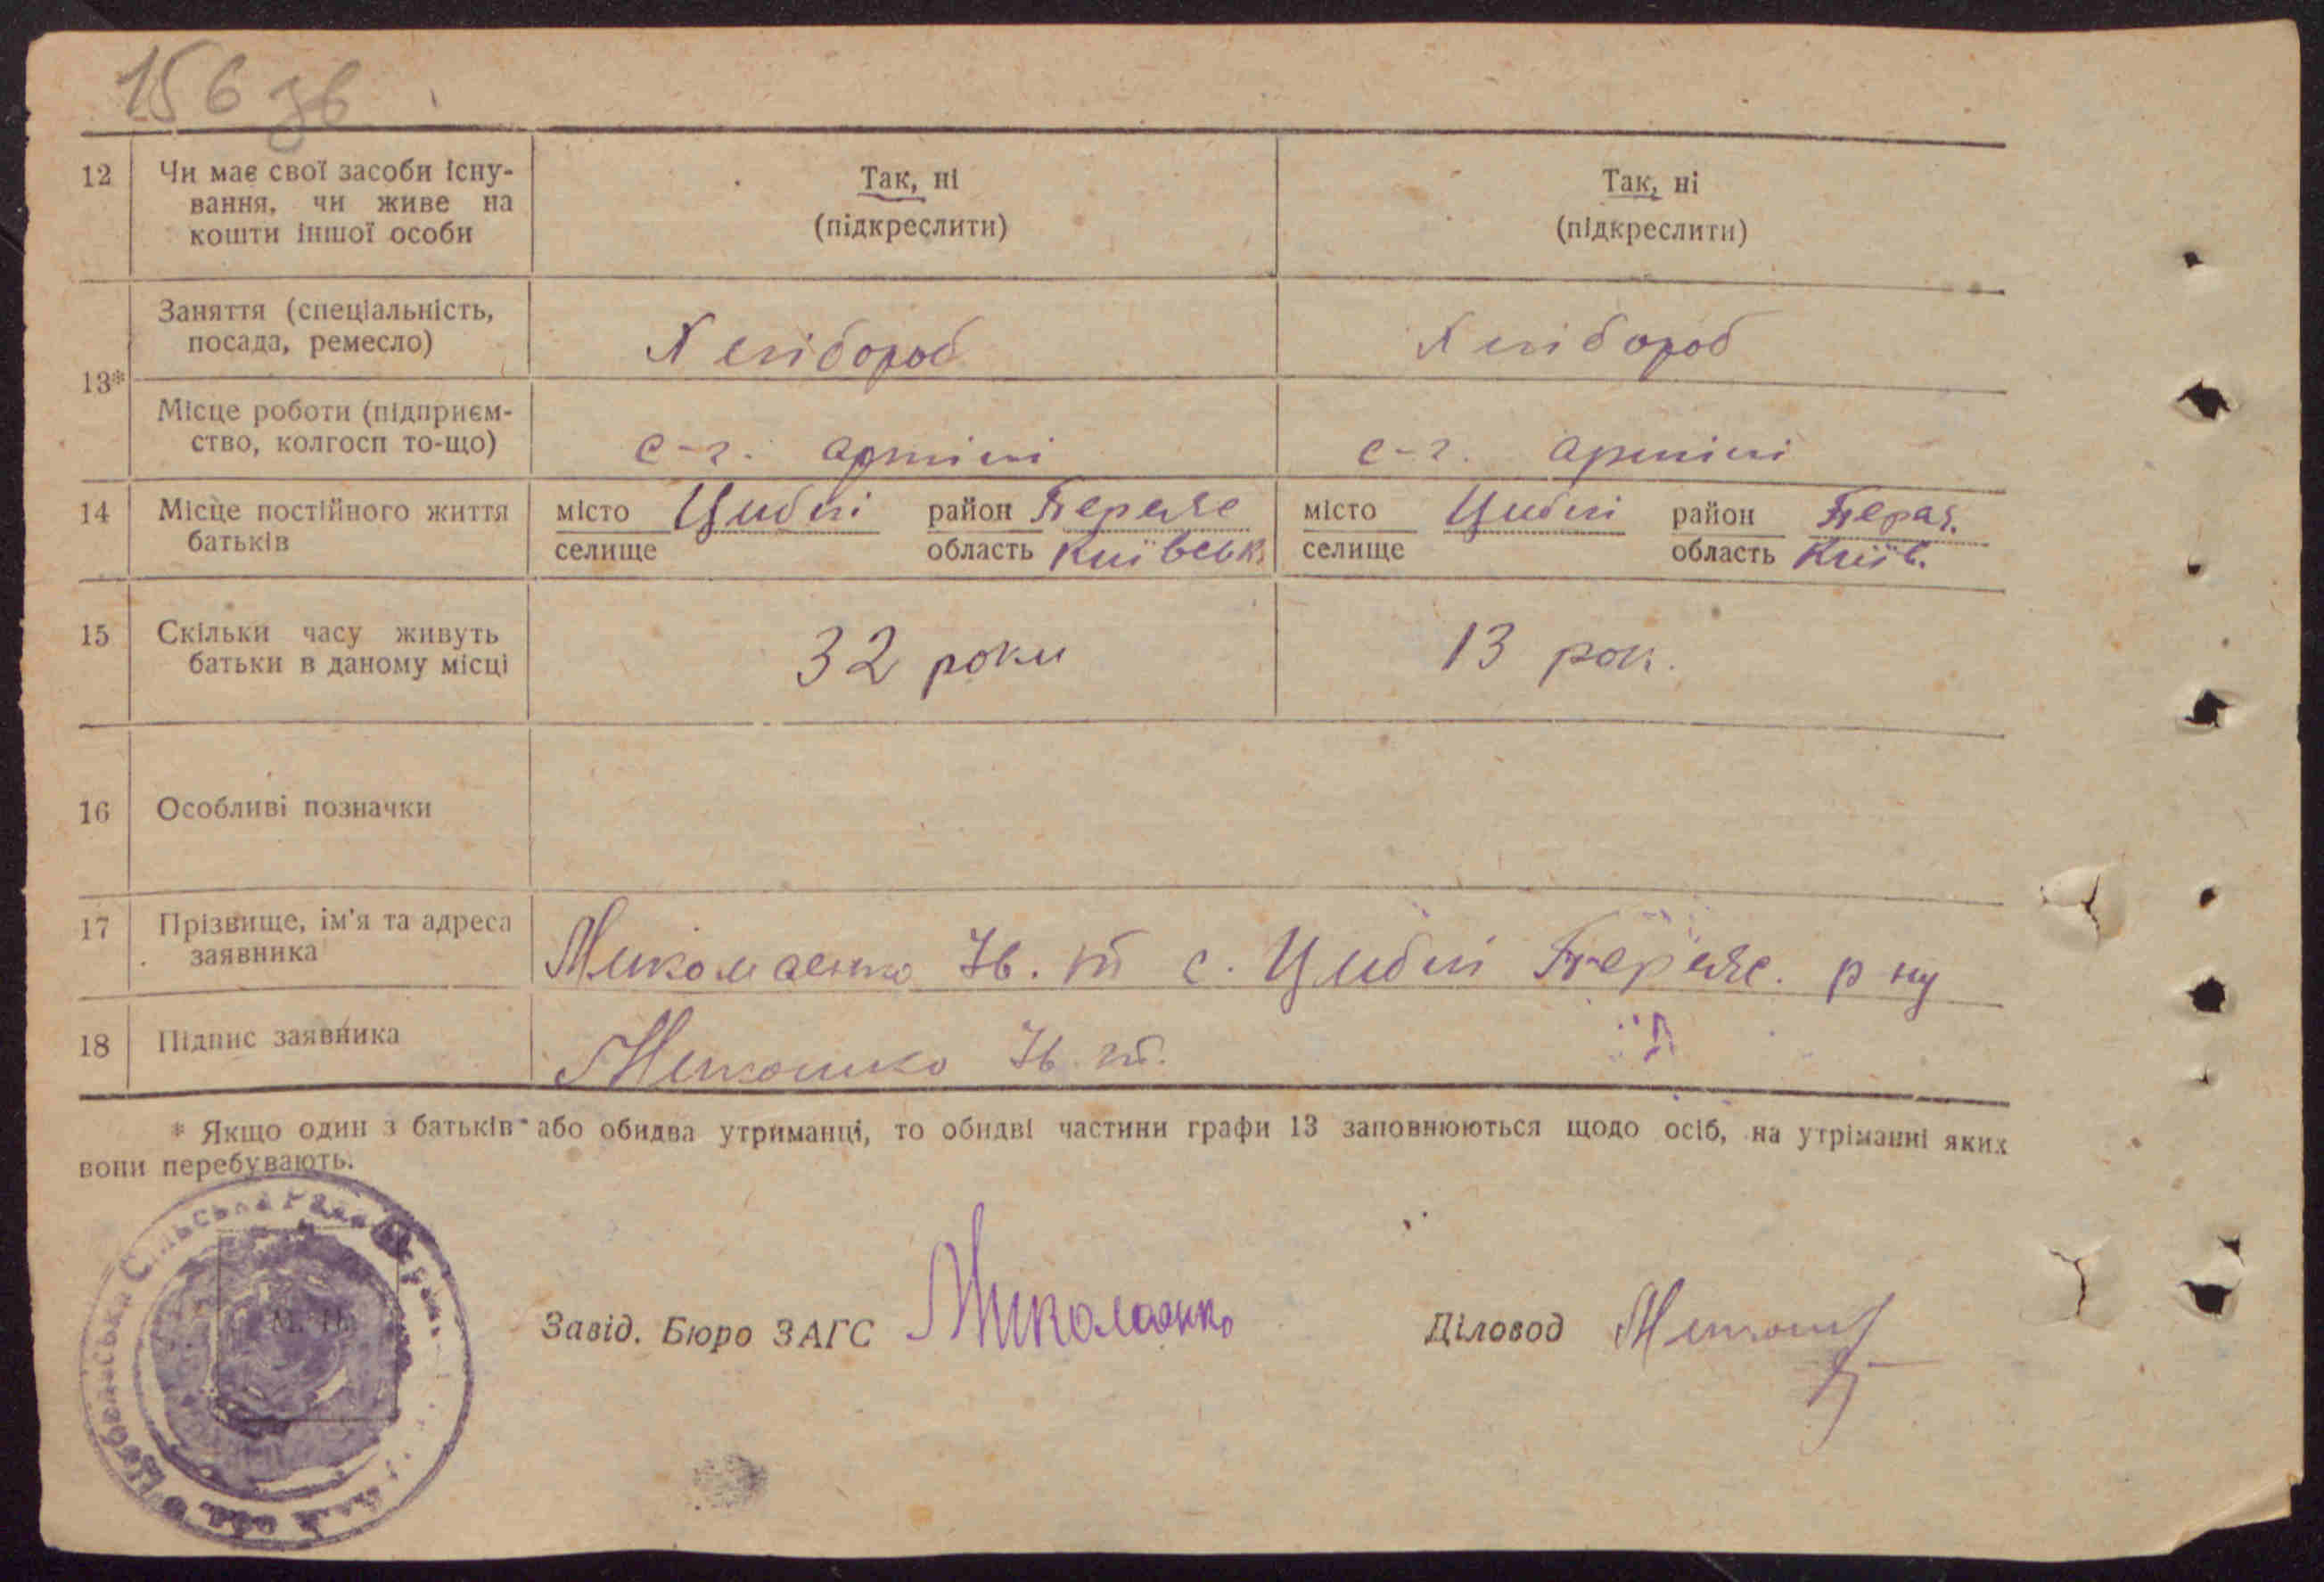 156 зв
12 Чи має свої засоби існу-
вання, чи живе на
кошти іншої особи
Так, ні
(підкреслити)
Так, ні
(підкреслити)
13*
Заняття (спеціальність,
посада, ремесло)
Хлібороб
Хлібороб
Місце роботи (підприєм-
ство, колгосп то-що)
с-г. артілі
с-г. артілі
14 Місце постійного життя
батьків
місто
селище
Циблі
район Переяс
область Київськ
місто
селище
Циблі
район Перея.
область Київ.
15 Скільки часу живуть
батьки в даному місці
32 роки
13 рок.
16 Особливі позначки
17 Прізвище, ім'я та адреса
заявника
Миколаенко Ів. с. Циблі Переяс. р ну
18 Підпис заявника
Ів.
* Якщо один з батьків або обидва утриманці, то обидві частини графи 13 заповнюються щодо осіб, на утріманні яких
вони перебувають.
Сільська Рада
М. П.
Завід. Бюро ЗАГС Миколаенко
Діловод